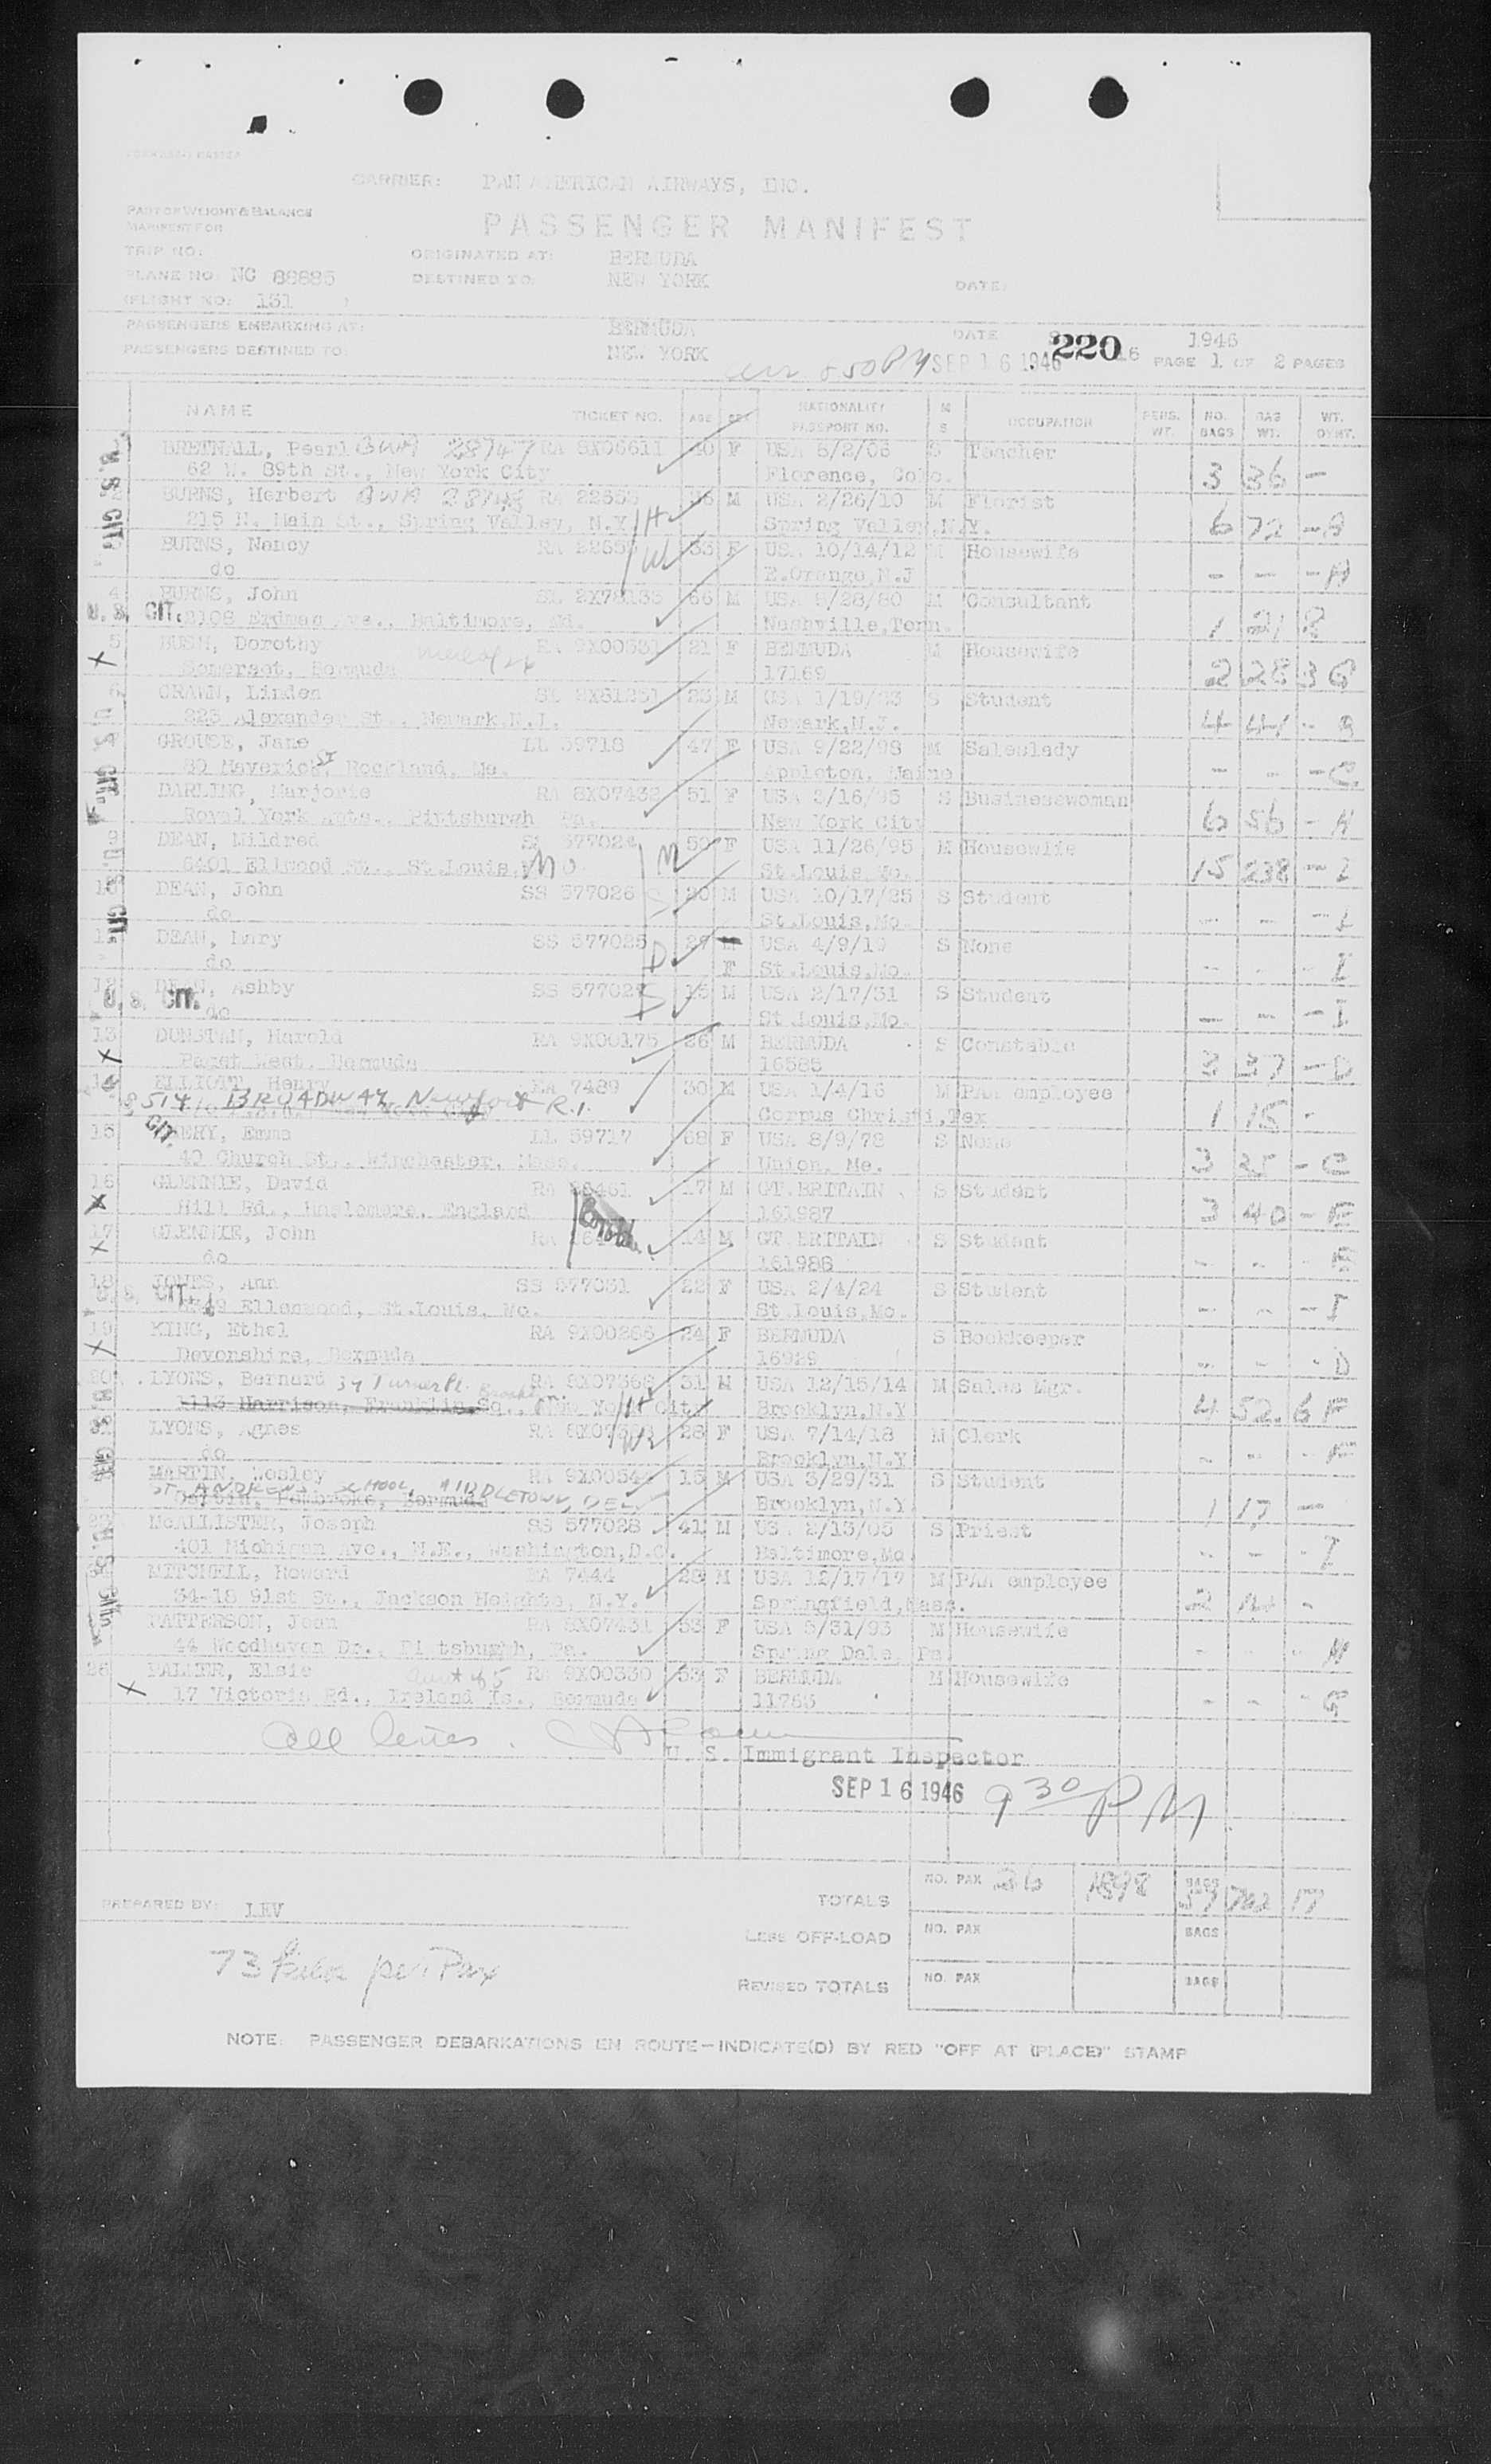 CARRIER: PAN AMERICAN AIRWAYS, INC.
PART OF WEIGHT & BALANCE
MANIFEST FOR
PASSENGER MANIFEST
TRIP NO. ORIGINATED AT: BERMUDA
PLANE NO. NC 88885 DESTINED TO: NEW YORK DATE:
(FLIGHT NO: 131 )
PASSENGERS EMBARKING AT: BERMUDA DATE 220 16 1946
PASSENGERS DESTINED TO: NEW YORK 850 PM SEP 16 1946 PAGE 1 OF 2 PAGES
NAME TICKET NO. AGE SEX NATIONALITY PASSPORT NO. M S OCCUPATION PERS. WT. NO. BAGS BAG WT. WT. OVHT.
BRETNALL, Pearl BWA 28747 RA 8X06611 40 F USA S Teacher
62 W. 89th St., New York City Florence, Colo. 3 36 -
BURNS, Herbert BWA 28748 RA 36 M USA 2/26/10 M Florist
215 N. Main St., Spring Valley, N.Y. H Spring Valley, N.Y. 6 72 - A
BURNS, Nancy RA 33 F USA 10/14/12 M Housewife
do W E.Orange, N.J - - - A
4 BURNS, John 66 M USA M Consultant
U. S. CIT. 2108 Erdman Ave., Baltimore, Md. Nashville, Tenn. 1 21
5 BUSH, Dorothy RA 9X00531 21 F BERMUDA M Housewife
X Somerset, Bermuda 17169 2 28 3 G
6 CRAWN, Linden 23 M USA 1/19/23 S Student
223 Alexander St., Newark, N.J. Newark, N.J. 4 44 -
CROUSE, Jane LL 59718 47 F USA 9/22/98 M Saleslady
80 Maverick St, Rockland, Me. Appleton, Maine - - - C
DARLING, Marjorie RA 8X07432 51 F USA 3/16/95 S Businesswoman
Royal York Apts., Pittsburgh Pa. New York City 6 56 - H
9 DEAN, Mildred 50 F USA 11/26/95 M Housewife
6401 Ellwood St., St.Louis, MO. M St.Louis, Mo. 15 238 - I
10 DEAN, John SS 577026 S 20 M USA 10/17/25 S Student
do St.Louis, Mo. - - - I
DEAN, Mary SS 577025 27 USA 4/9/19 S None
do D F St.Louis, Mo. - - - I
12 DEAN, Ashby S 15 M USA 2/17/31 S Student
U. S. CIT. do St.Louis, Mo. - - - I
13 DUNSTAN, Harold RA 9X00175 26 M BERMUDA S Constable
X Paget West, Bermuda 16585 3 37 - D
14 ELLIOTT, Henry RA 7489 30 M USA 1/4/16 M PAA employee
514 BROADWAY, Newport R.I. Corpus Christi, Tex 1 15 -
15 EMERY, Emma LL 59717 68 F USA 8/9/78 S None
CIT. 40 Church St., Winchester, Mass. Union, Me. 3 25 - C
16 GLENNIE, David RA 17 M GT.BRITAIN S Student
X Hill Rd., Haslemere, England 161987 3 40 - E
17 GLENNIE, John RA 14 M GT.BRITAIN S Student
X do 161988 - - E
18 JONES, Ann SS 577031 22 F USA 2/4/24 S Student
U. S. CIT. Ellenwood, St.Louis, Mo. St.Louis, Mo. - - - I
19 KING, Ethel RA 9X00266 24 F BERMUDA S Bookkeeper
X Devonshire, Bermuda 16929 - - - D
20 LYONS, Bernard 34 Turner Pl. RA 8X07368 31 M USA 12/15/14 M Sales Mgr.
1113 Harrison, Franklin Sq., New York City H Brooklyn, N.Y 4 52 6 F
LYONS, Agnes RA 28 F USA 7/14/18 M Clerk
do W Brooklyn, N.Y - - - F
MARTIN, Wesley RA 9X00544 15 M USA 3/29/31 S Student
ST. ANDREWS SCHOOL, MIDDLETOWN, DEL. Pembroke, Bermuda Brooklyn, N.Y. 1 17 -
McALLISTER, Joseph SS 577028 41 M USA 2/13/05 S Priest
401 Michigan Ave., N.E., Washington, D.C. Baltimore, Md. - - - I
MITCHELL, Howard RA 7444 28 M USA 12/17/17 M PAA employee
34-18 91st St., Jackson Heights, N.Y. Springfield, Mass. 2
PATTERSON, Jean RA 8X07431 53 F USA 5/31/93 M Housewife
44 Woodhaven Dr., Pittsburgh, Pa. Spring Dale, Pa - - - H
26 PALMER, Elsie RA 9X00330 53 F BERMUDA M Housewife
X 17 Victoria Rd., Ireland Is., Bermuda 11765 - - - G
U. S. Immigrant Inspector
SEP 16 1946 9 30 PM
TOTALS NO. PAX 26 BAGS 17
PREPARED BY: LEV
LESS OFF-LOAD NO. PAX BAGS
73 per Pax
REVISED TOTALS NO. PAX BAGS
NOTE: PASSENGER DEBARKATIONS EN ROUTE—INDICATE(D) BY RED "OFF AT (PLACE)" STAMP